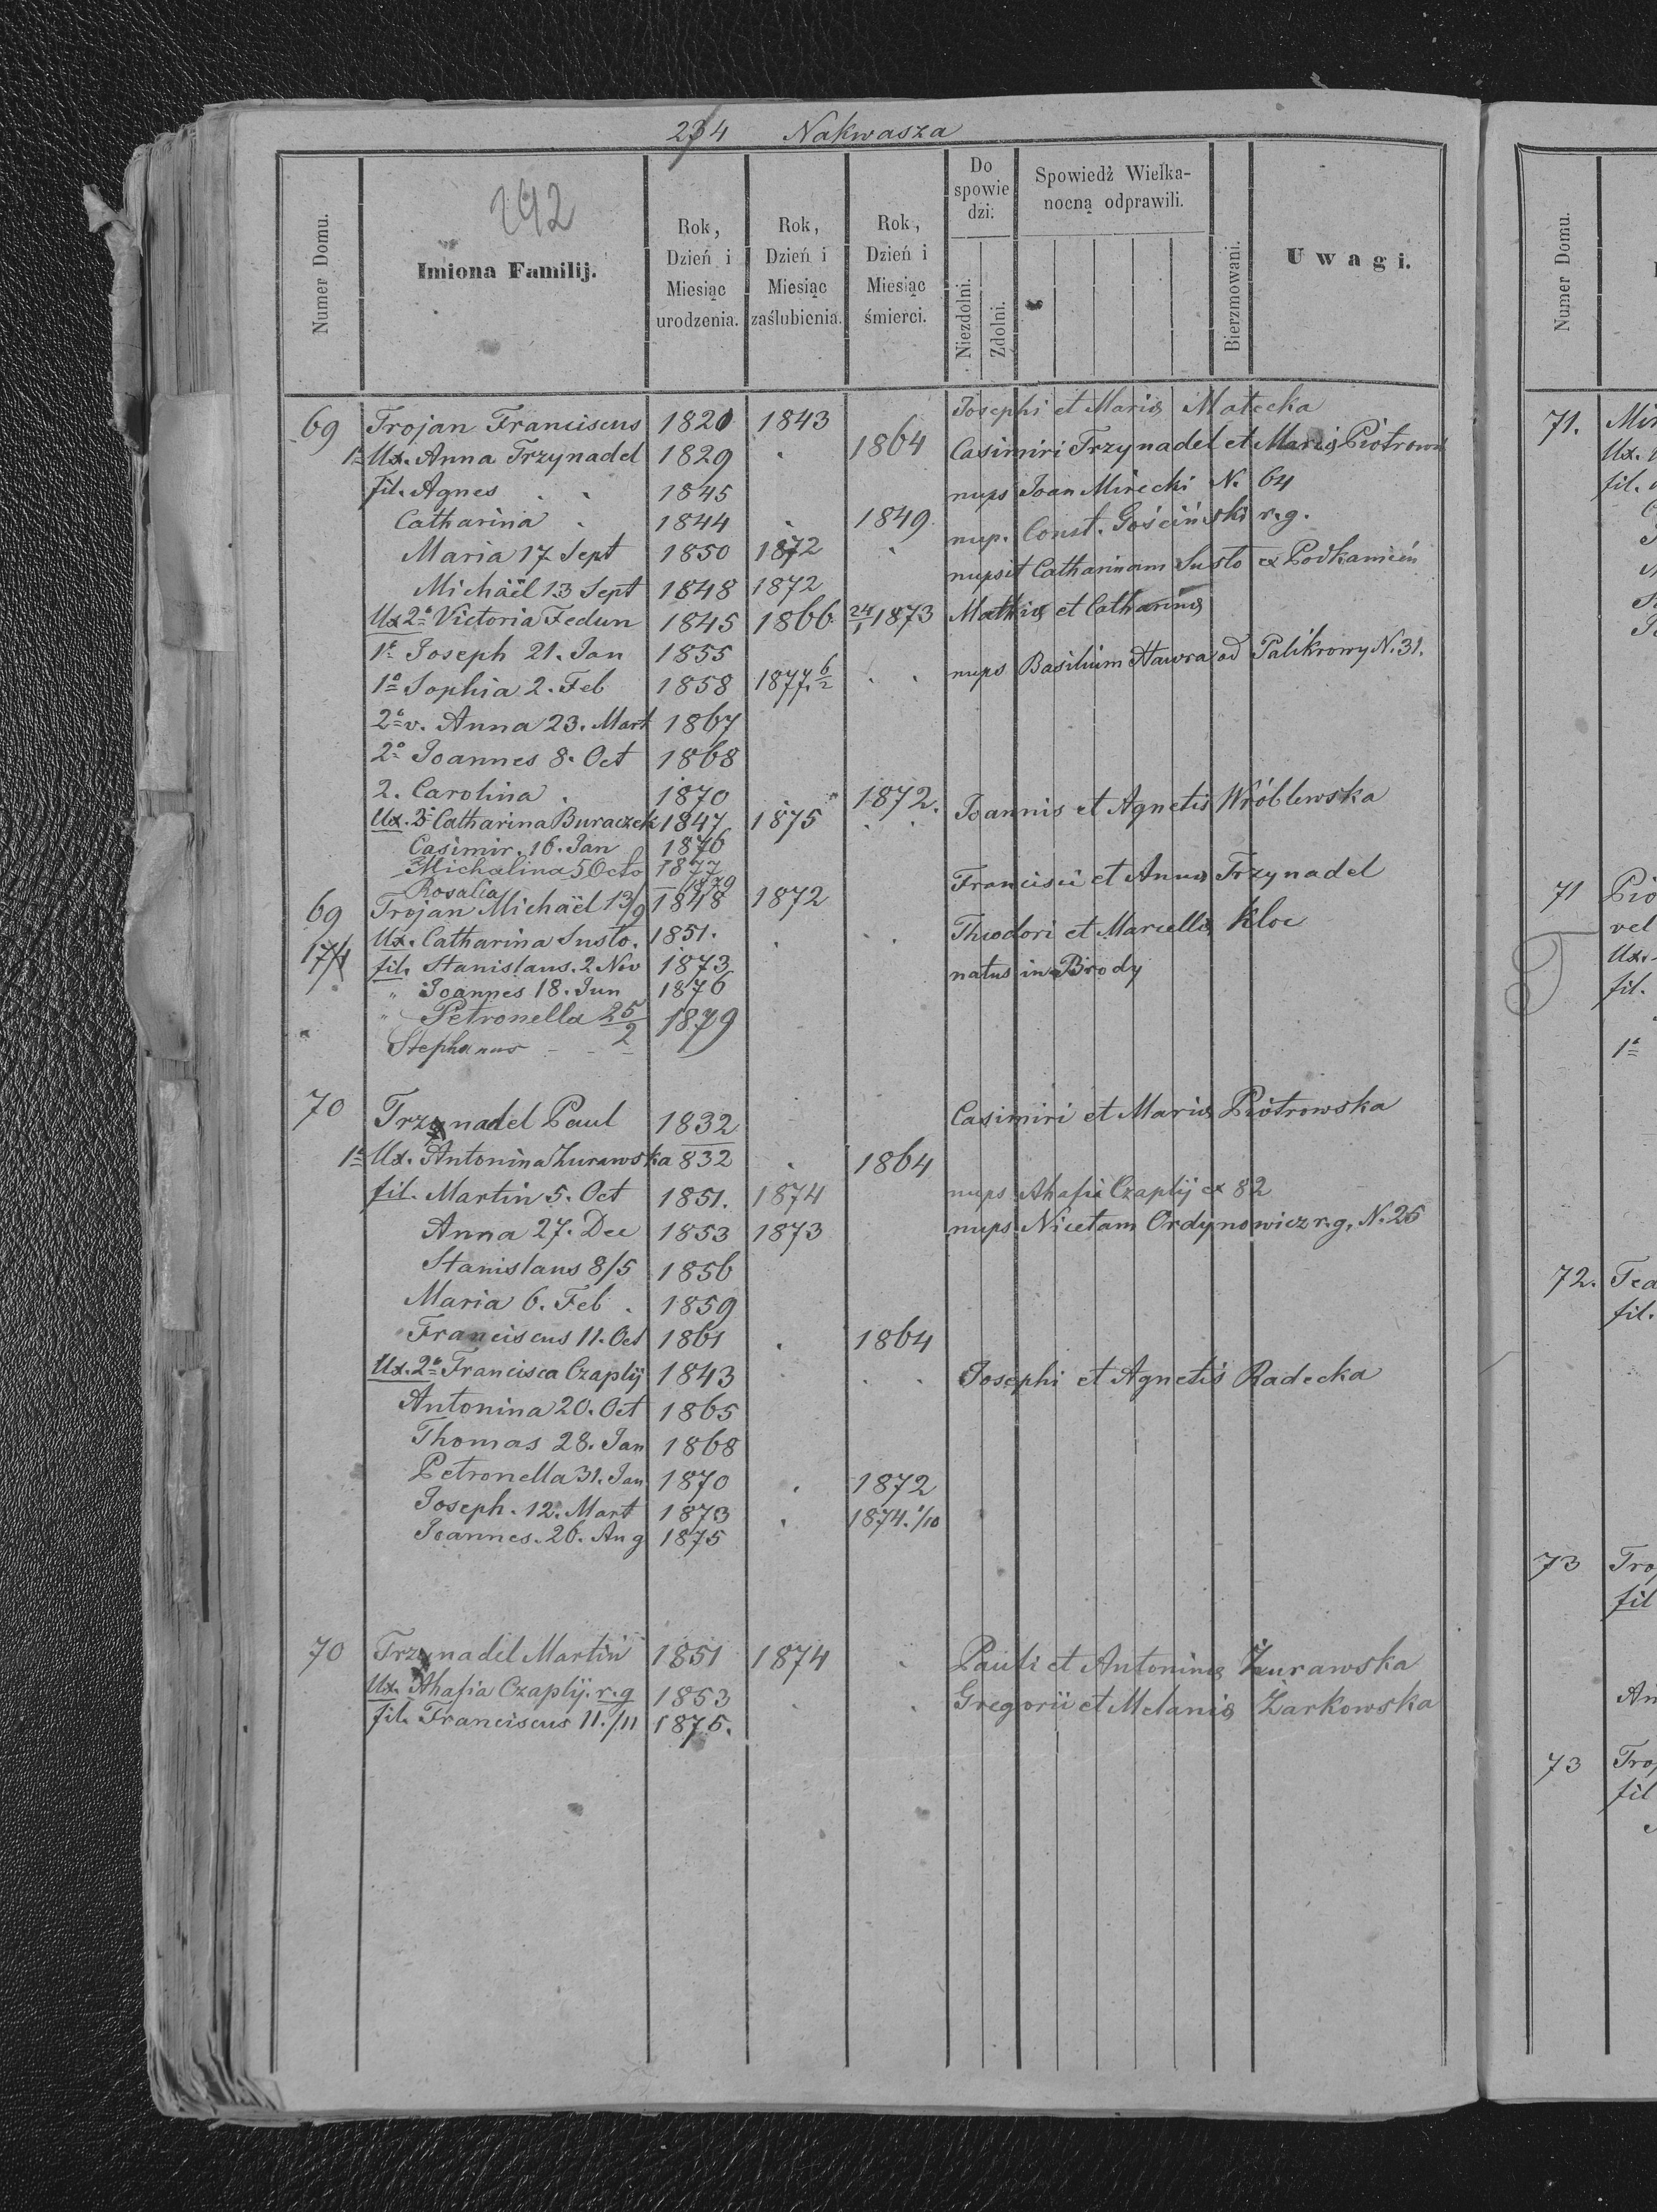 234 Nakwasza
Numer Domu.
Imiona Familij.
Rok, Dzień i Miesiąc urodzenia.
Rok, Dzień i Miesiąc zaślubienia.
Rok, Dzień i Miesiąc śmierci.
Do spowiedzi:
Niezdolni.
Zdolni.
Spowiedź Wielkanocną odprawili.
Bierzmowani.
Uwagi.
242
69 Trojan Franciscus 1820 1843 Josephi et Mariæ Małecka
1º Ux. Anna Trzynadel 1829 1864 Casimiri Trzynadel et Mariæ Piotrows
fil. Agnes 1845 nups Joan Mirecki N. 64
Catharina 1844 1849
Maria 17 Sept 1850 1872 nup. Const. Gościński r.g.
Michaël 13 Sept 1848 1872 nupsit Catharinam Susto ex Podkamień
Ux 2º Victoria Fedun 1845 1866 24/1 1873 Mathiæ et Catharinæ
1º Joseph 21. Jan 1855
1º Sophia 2. Feb 1858 1877. 6/2 nups Basilium Hawra od Palikrowy N. 31.
2º v. Anna 23. Mart 1867
2º Joannes 8. Oct 1868
2. Carolina 1870 1872.
Ux. 3º Catharina Buraczek 1847 1875 Joannis et Agnetis Wróblewska
Casimir. 16. Jan 1876
Michalina 5 Octo 1877
Rosalia 1879
69 Trojan Michaël 13/9 1848 1872 Francisci et Annæ Trzynadel
Ux. Catharina Susto. 1851. Theodori et Marcellæ Kloc
174 fil. Stanislaus. 2 Nov 1873 natus in Brody
" Joannes 18. Jun 1876
" Petronella 25/2 1879
Stephanus
70 Trzynadel Paul 1832 Casimiri et Mariæ Piotrowska
1º Ux. Antonina Zurawska 832 1864
fil. Martin 5. Oct 1851. 1874 nups Ahafia Czaplij ex 82
Anna 27. Dec 1853 1873 nups Nicetam Ordynowicz r.g. N. 25
Stanislaus 8/5 1856
Maria 6. Feb 1859
Franciscus 11. Oct 1861 1864
Ux. 2º Francisca Czaplij 1843 Josephi et Agnetis Radecka
Antonina 20. Oct 1865
Thomas 28. Jan 1868
Petronella 31. Jan 1870 1872
Joseph. 12. Mart 1873 1874. 1/10
Joannes. 26. Aug 1875
70 Trzynadel Martin 1851 1874 Pauli et Antoninæ Żurawska
Ux. Ahafia Czaplij. r.g 1853 Gregorii et Melaniæ Żarkowska
fil. Franciscus 11./11 1875.
Numer Domu.
71.
Ux.
fil.
71 Pio
vel
Ux.
fil.
1º
72.
fil.
73 Tro
fil
An
73 Tro
fil